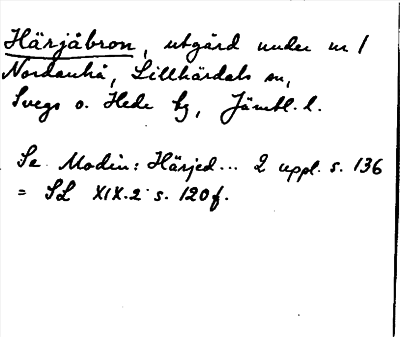 Härjåbron, utgård under nr 1
Nordanhå, Lillhärdals sn,
Svegs o. Hede tg, Jämtl. l.
Se Modin: Härjed... 2 uppl. s. 136
= SL XIX.2 s. 120 f.